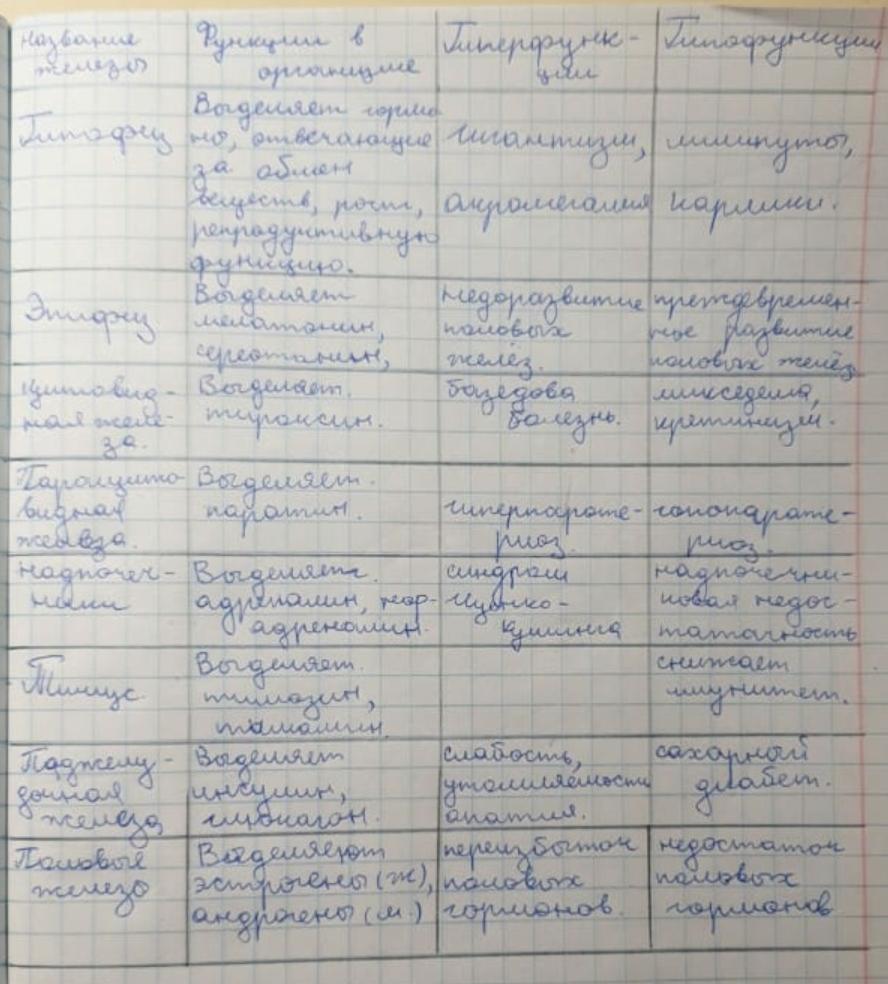 Название железы
Функции в организме
Гиперфунк-
ции
Гипофункции
Гипофиз
Выделяет гормо
ны, отвечающие
за обмен
веществ, рост,
репродуктивную
функцию.
гигантизм,
акромегалия
лилипуты,
карлики.
Эпифиз
Выделяет
мелатонин,
серотонин,
недоразвитие
половых
желёз.
преждевремен-
ное развитие
половых желёз
Щитовид-
ная желе-
за.
Выделяет.
тироксин.
базедова
болезнь.
микседема,
кретинизм.
Паращито
видная
железа.
Выделяет.
паратин.
гиперпарате-
риоз.
гопопарате-
риоз.
Надпочеч-
ники
Выделяет.
адреналин, нор-
адреналин.
синдром
Иценко-
Кушинга
надпочечни-
ковая недос-
таточность
Тимус
Выделяет.
тимозин,
тималин.
снижает
иммунитет.
Поджелу-
дочная
железа
Выделяет
инсулин,
глюкагон.
слабость,
утомляемость
апатия.
сахарный
диабет.
Половые
железы
Выделяют
эстрогены (ж),
андрогены (м.)
переизбыток
половых
гормонов.
недостаток
половых
гормонов